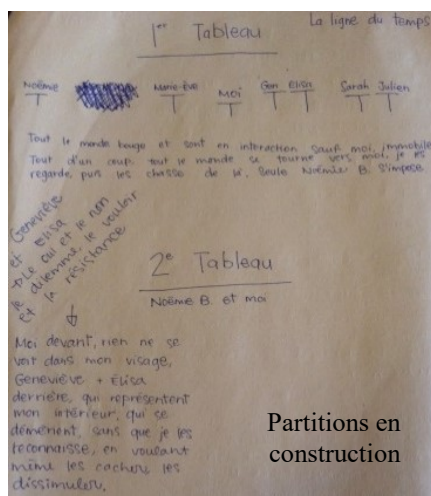 1er Tableau
La ligne du temps
Noémie Marie-Ève Moi Gen Élisa Sarah Julien
Tout le monde bouge et sont en interaction sauf moi, immobile
Tout d'un coup tout le monde se tourne vers moi, je les
regarde, puis les chasse de là. Seule Noémie B. s'impose.
Geneviève
et Élisa
Le oui et le non
le dilemme, le vouloir
et la résistance
2e Tableau
Noémie B. et moi
Moi devant, rien ne se
voit dans mon visage,
Geneviève + Élisa
derrière, qui représentent
mon intérieur, qui se
démènent, sans que je les
reconnaisse, en voulant
même les cacher, les
dissimuler.
Partitions en
construction